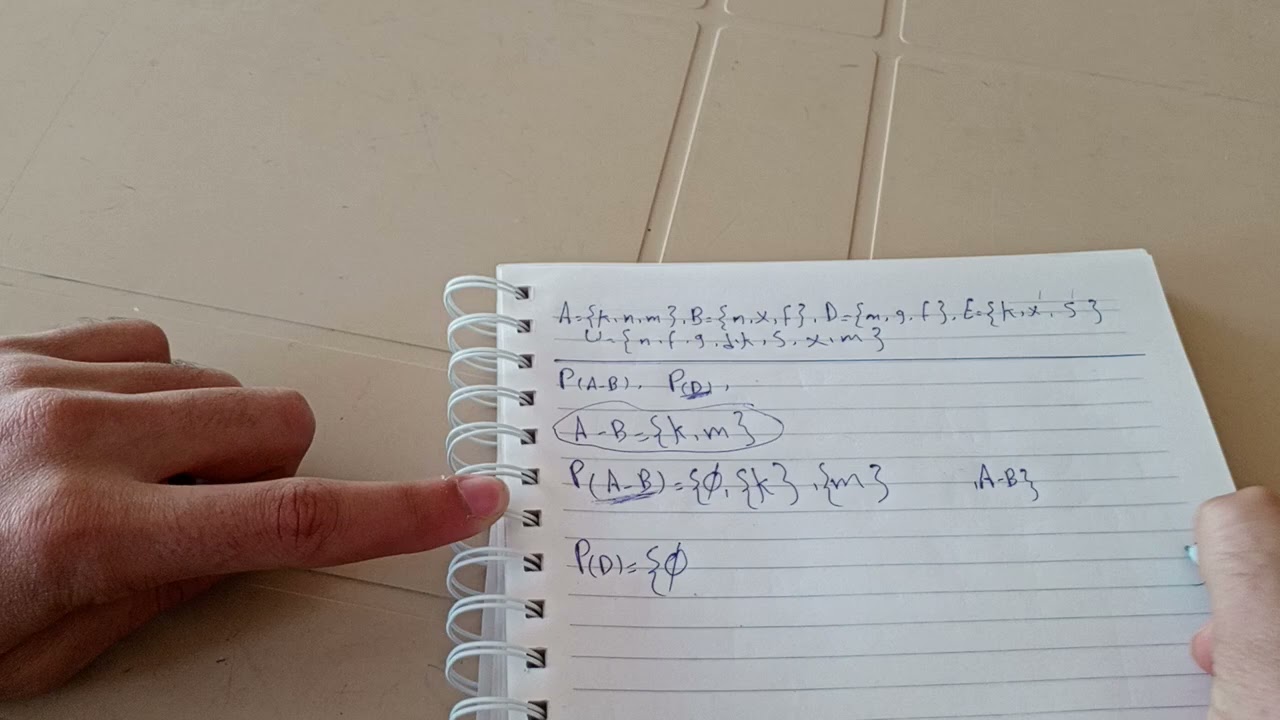 A={k,n,m}, B={n,x,f}, D={m,g,f}, E={k,x,s}
U={n,f,g,d,k,s,x,m}
P(A-B), P(D),
A-B={k,m}
P(A-B)={∅,{k},{m} ,A-B}
P(D)={∅